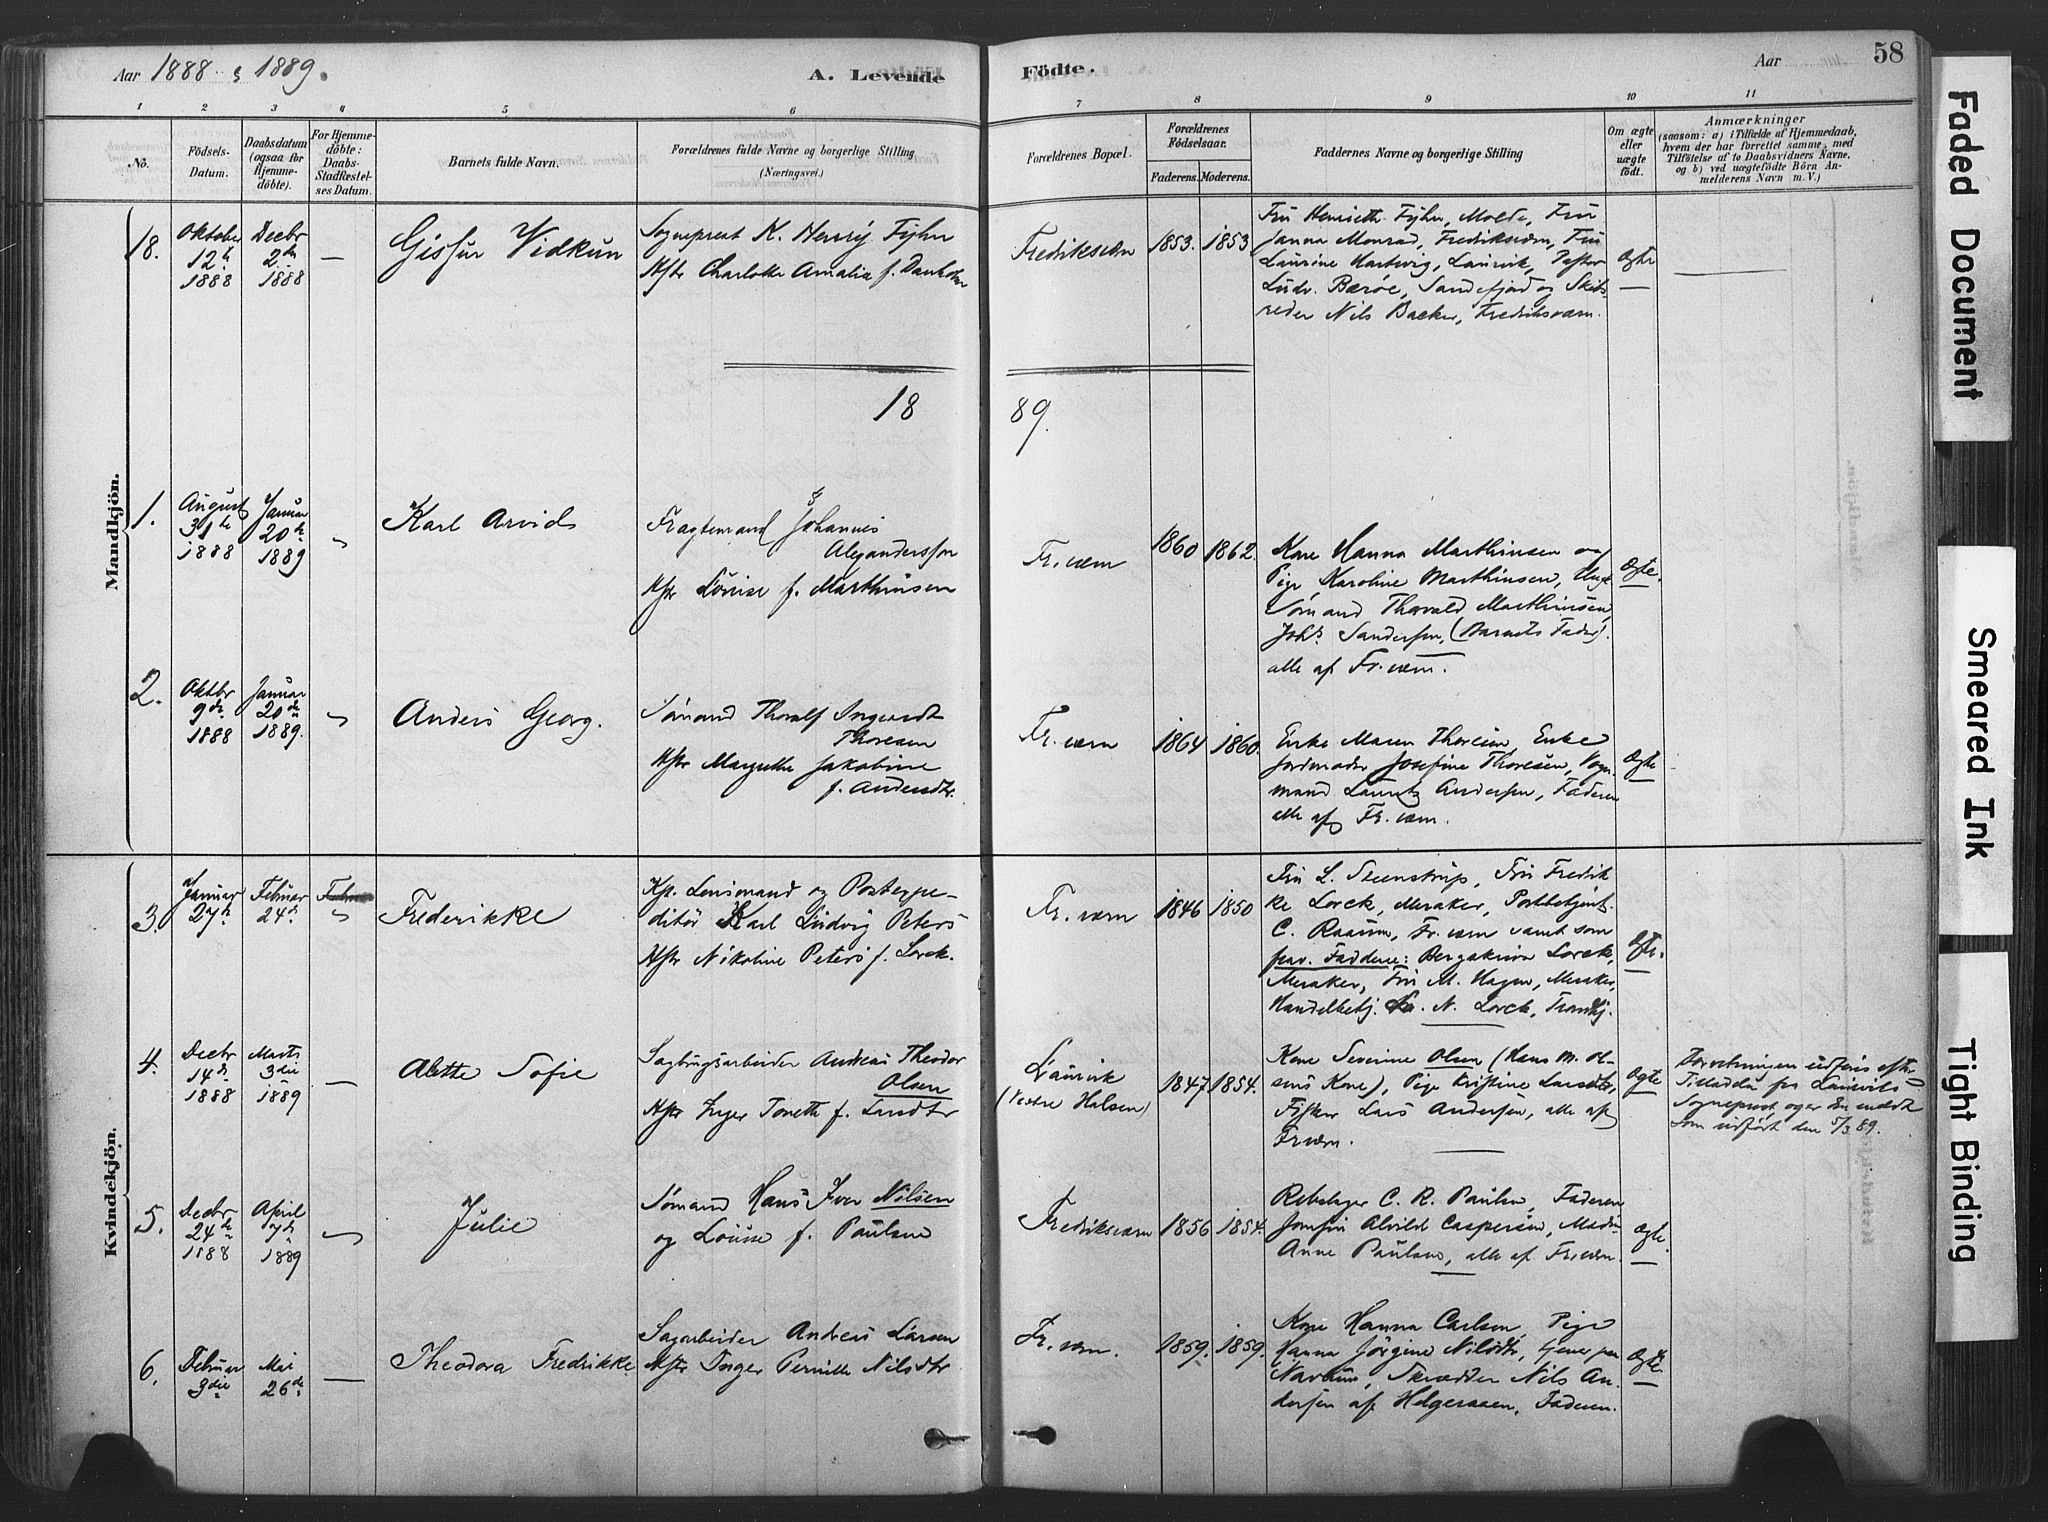 Aar 1888 & 1889.
A. Levende Födte.
Aar
58
1 2 3 4 5 6 7 8 9 10 11
No.
Födsels-
Datum.
Daabsdatum
(ogsaa for
Hjemme-
döbte).
For Hjemme-
döbte:
Daabs-
Stadfæstel-
ses Datum.
Barnets fulde Navn.
Forældrenes fulde Navne og borgerlige Stilling
(Næringsvei.)
Forældrenes Bopæl.
Forældrenes
Födselsaar.
Faderens. Moderens.
Faddernes Navne og borgerlige Stilling
Om ægte
eller
uægte
födt.
Anmærkninger
(saasom: a) i Tilfælde af Hjemmedaab,
hvem der har forrettet samme, med
Tilföielse af to Daabsvidners Navne,
og b) ved uægtefödte Börn An-
melderens Navn m. V.)
Mandkjön.
18.
Oktober
12te
1888
Decbr
2den
1888
—
Gissur Vidkun
Sogneprest K. Henry Fyhn
Hstr Charlotte Amalia f. Dankertsen
Fredriksværn
1853. 1853
Fru Henriette Fyhn, Molde, Fru
Janna Monrad, Fredriksværn, Fru
Laurine Hartvig, Laurvik, Pastor
Ludv. Barøe, Sandefjord og Skibs-
reder Nils Backer, Fredriksværn.
Ægte
18 89.
1.
August
31te
1888
Januar
20de
1889
Karl Arvids
Fragtemand Johannes
Alexandersson
Hstr Lovise f. Marthinsen
Fr.værn
1860 1862.
Kone Hanna Marthinsen og
Pige Karoline Marthinsen, Unge
Sømand Thorvald Marthinsen,
Johs. Sandersen, (Barnets Fader).
alle af Fr.værn.
Ægte.
2.
Oktbr
9de
1888
Januar
20de
1889.
Anders Georg.
Sømand Thoralf Ingvardt
Thoresen
Hstr Margrethe Jakobine
f. Andersdtr.
Fr.værn
1864 1860.
Enke Maren Thoresen, Enke
Jordmoder Josefine Thoresen, Vogn-
mand Lauritz Andersen, Faderen
alle af Fr.værn.
Ægte
Kvindekjön.
3.
Januar
27de
Februar
24de
Frederikke
Kp. Lensmand og Postexpe-
ditør Karl Ludvig Peters
Hstr Nikoline Peters f. Lorck.
Fr.værn
1846 1850
Fru L. Steenstrup, Fru Fredrik-
ke Lorck, Meraker, Postbetjent
C. Raaum, Fr.værn samt som
frav. Faddere: Bergskriver Lorck,
Meraker, Fru M. Hagen, Meraker,
Handelsbetj. N. Lorck, Trondhj.
Ægte.
4.
Decbr
14de
1888
Marts
3die
1889
—
Alette Sofie
Sagbrugsarbeider Andreas Theodor
Olsen
Hstr Inger Tonette f. Larsdtr
Laurvik
(Vestre Halsen)
1847 1854.
Kone Severine Olsen (Hans M. Ol-
sens Kone), Pige Kristine Larsdtr,
Fisker Lars Andersen, alle af
Frværn.
Ægte
Forretningen udføres efter
Tilladelse fra Laurviks
Sogneprest og er
som udført den 5/3 89.
5.
Decbr
24de
1888
April
7de
1889
Julie
Sømand Hans Iver Nilsen
og Lovise f. Paulsen
Fredriksværn
1856 1854.
Rebslager C. R. Paulsen, Faderen
Jomfru Alvilde Caspersen, Madm
Anne Paulsen, alle af Fr.værn.
Ægte.
6.
Februar
3die
Mai
26de
—
Theodora Fredrikke
Sagarbeider Andreas Larsen
Hstr Inger Pernille Nilsdtr
Fr.værn.
1859. 1859.
Kone Hanna Carlsen, Pige
Hanna Jørgine Nilsdtr, tjener paa
Navrum, Skrædder Nils An-
dersen af Helgeraaen, Faderen.
Ægte.
Faded Document
Smeared Ink
Tight Binding